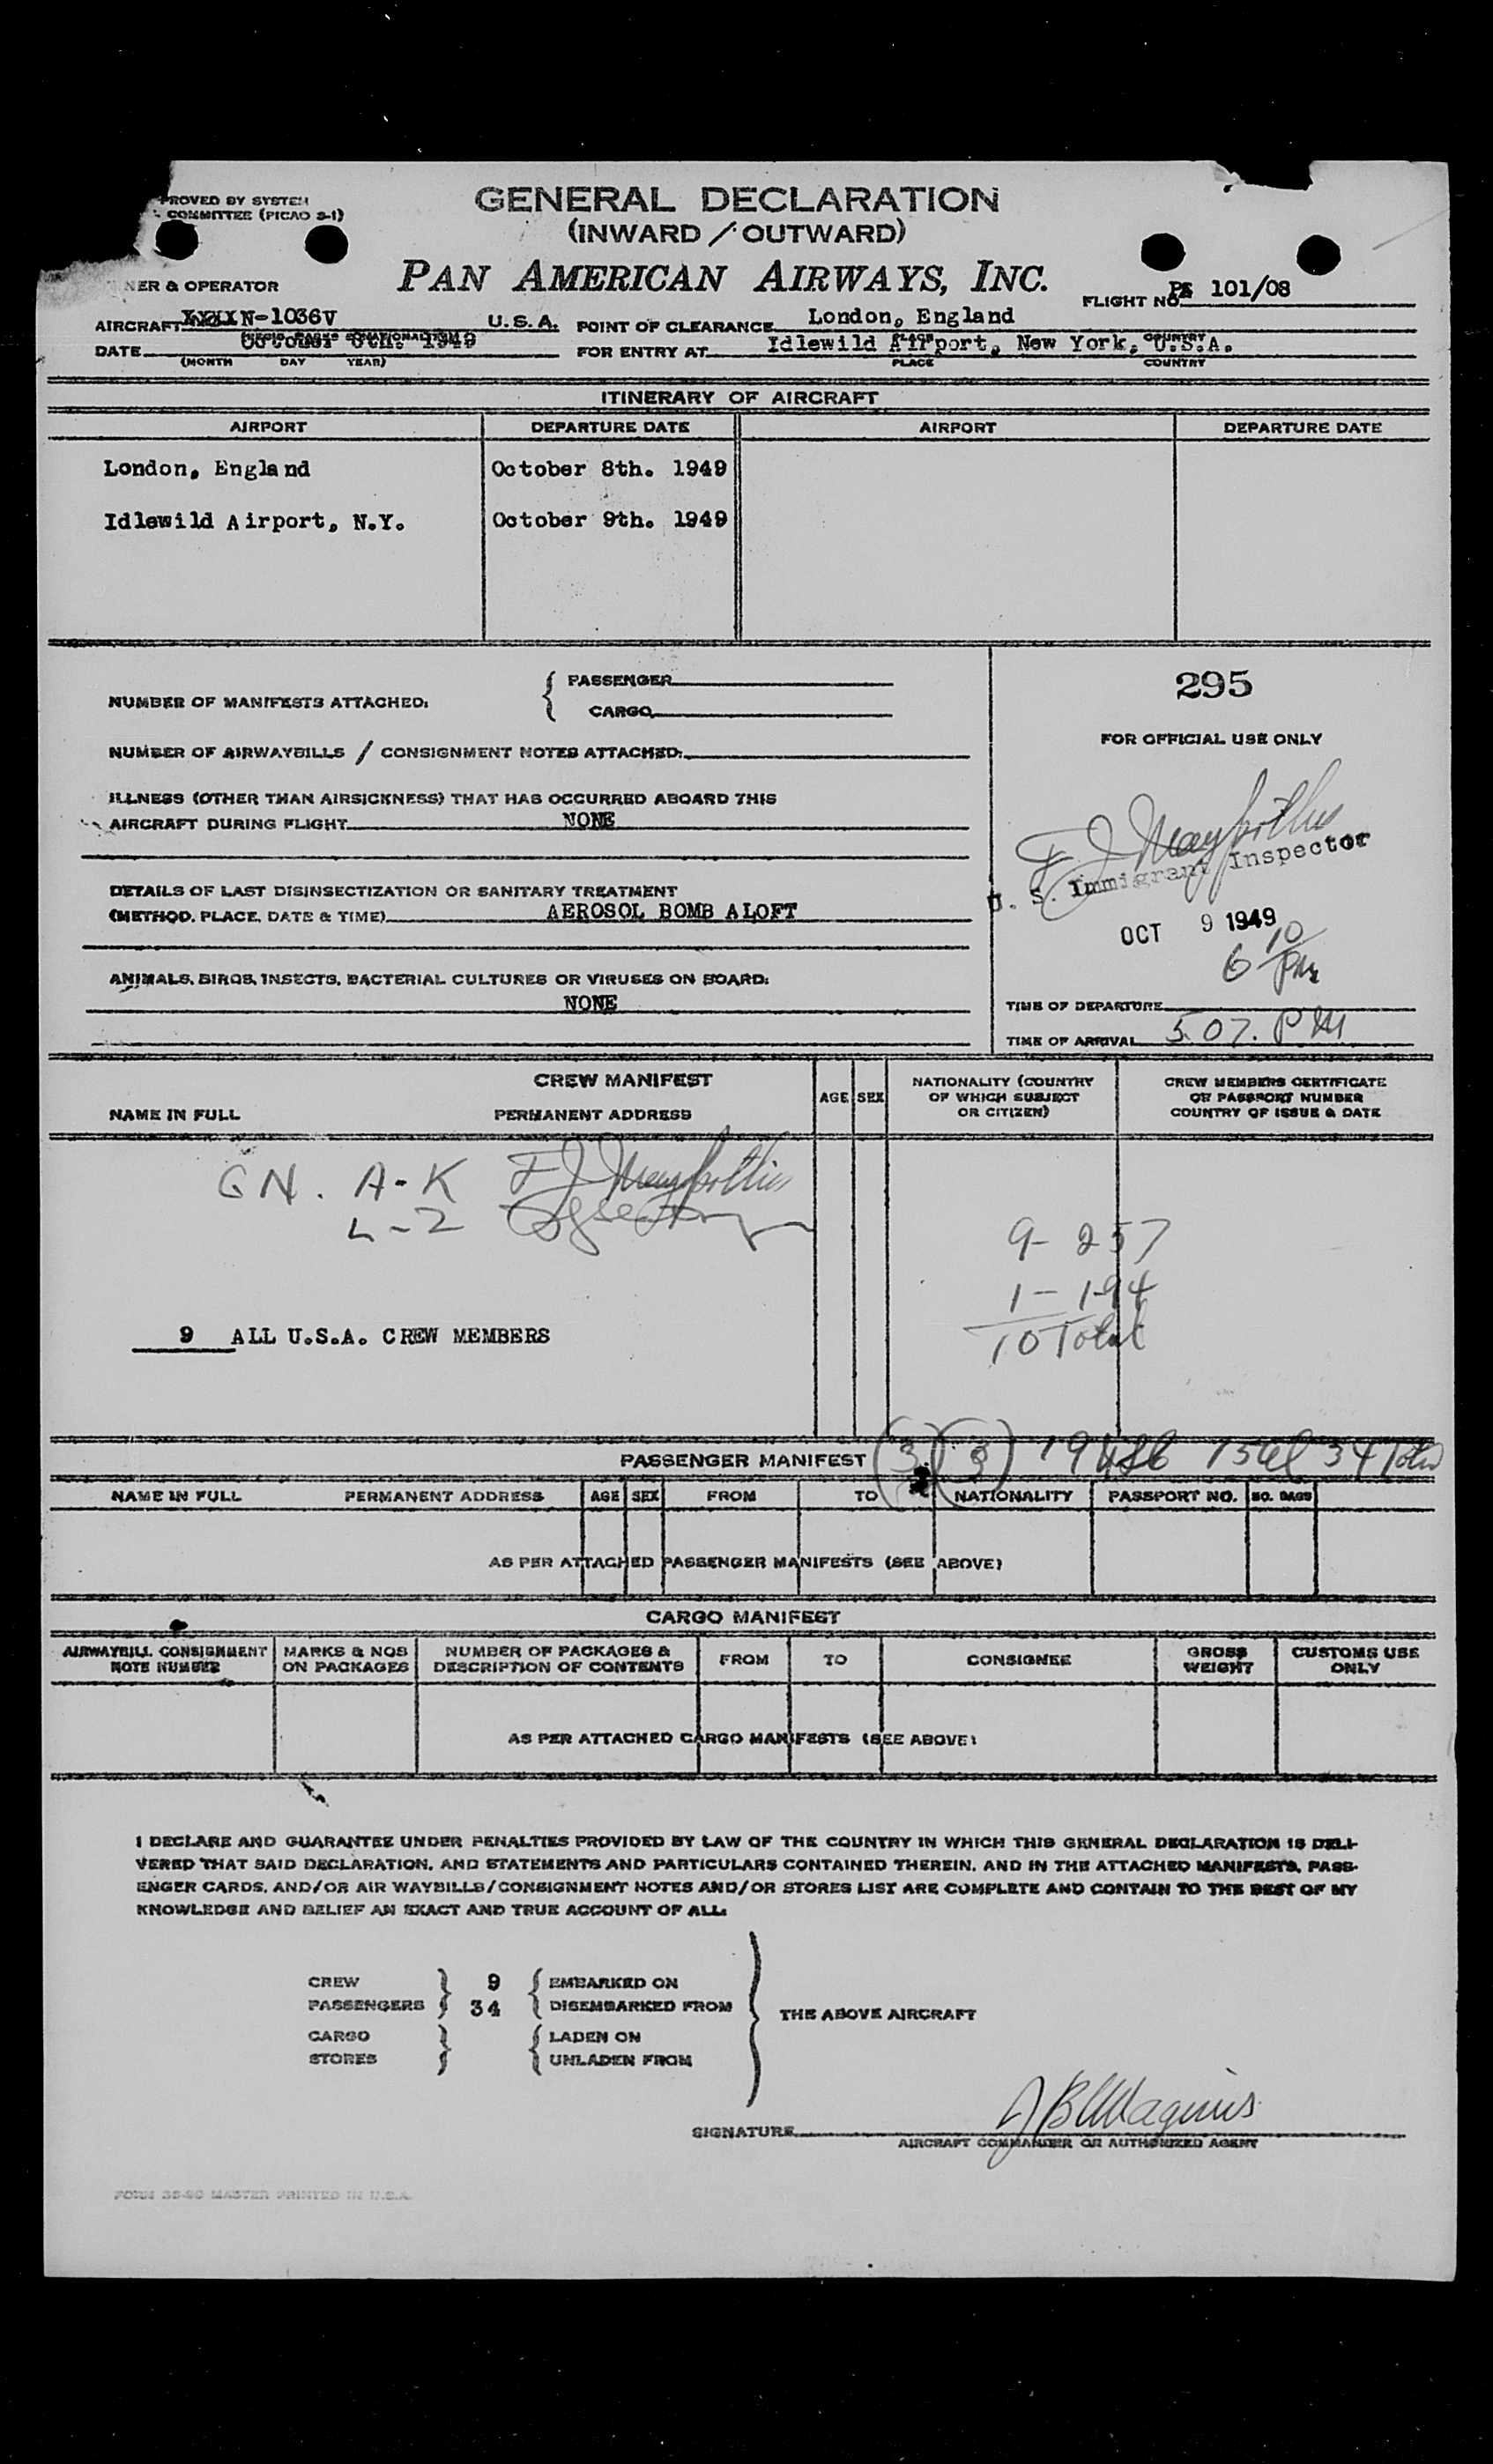 PROVED BY SYSTEM
COMMITTEE (PICAO S-1)
GENERAL DECLARATION
(INWARD / OUTWARD)
PAN AMERICAN AIRWAYS, INC.
NER & OPERATOR
FLIGHT NO. 101/08
AIRCRAFT N-1036V U.S.A. POINT OF CLEARANCE London, England
DATE October 8th. 1949 FOR ENTRY AT Idlewild Airport, New York, U.S.A.
(MONTH DAY YEAR) PLACE COUNTRY
ITINERARY OF AIRCRAFT
AIRPORT DEPARTURE DATE AIRPORT DEPARTURE DATE
London, England October 8th. 1949
Idlewild Airport, N.Y. October 9th. 1949
295
NUMBER OF MANIFESTS ATTACHED: { PASSENGER
CARGO
FOR OFFICIAL USE ONLY
NUMBER OF AIRWAYBILLS / CONSIGNMENT NOTES ATTACHED:
ILLNESS (OTHER THAN AIRSICKNESS) THAT HAS OCCURRED ABOARD THIS
AIRCRAFT DURING FLIGHT NONE
U. S. Immigrant Inspector
DETAILS OF LAST DISINSECTIZATION OR SANITARY TREATMENT
(METHOD, PLACE, DATE & TIME) AEROSOL BOMB ALOFT
OCT 9 1949
6 10 PM
ANIMALS, BIRDS, INSECTS, BACTERIAL CULTURES OR VIRUSES ON BOARD:
NONE
TIME OF DEPARTURE
TIME OF ARRIVAL 5.07. PM
CREW MANIFEST
NAME IN FULL PERMANENT ADDRESS AGE SEX NATIONALITY (COUNTRY OF WHICH SUBJECT OR CITIZEN) CREW MEMBERS CERTIFICATE OR PASSPORT NUMBER COUNTRY OF ISSUE & DATE
GN. A-K
L-Z
9- 257
1- 194
10 Total
9 ALL U.S.A. CREW MEMBERS
PASSENGER MANIFEST (3) (3) 19 USC 15 al 34 Total
NAME IN FULL PERMANENT ADDRESS AGE SEX FROM TO NATIONALITY PASSPORT NO. NO. BAGS
AS PER ATTACHED PASSENGER MANIFESTS (SEE ABOVE)
CARGO MANIFEST
AIRWAYBILL CONSIGNMENT NOTE NUMBER MARKS & NOS ON PACKAGES NUMBER OF PACKAGES & DESCRIPTION OF CONTENTS FROM TO CONSIGNEE GROSS WEIGHT CUSTOMS USE ONLY
AS PER ATTACHED CARGO MANIFESTS (SEE ABOVE)
I DECLARE AND GUARANTEE UNDER PENALTIES PROVIDED BY LAW OF THE COUNTRY IN WHICH THIS GENERAL DECLARATION IS DELI-
VERED THAT SAID DECLARATION, AND STATEMENTS AND PARTICULARS CONTAINED THEREIN, AND IN THE ATTACHED MANIFESTS, PASS-
ENGER CARDS, AND/OR AIR WAYBILLS/CONSIGNMENT NOTES AND/OR STORES LIST ARE COMPLETE AND CONTAIN TO THE BEST OF MY
KNOWLEDGE AND BELIEF AN EXACT AND TRUE ACCOUNT OF ALL:
CREW 9 EMBARKED ON
PASSENGERS 34 DISEMBARKED FROM
THE ABOVE AIRCRAFT
CARGO LADEN ON
STORES UNLADEN FROM
SIGNATURE
AIRCRAFT COMMANDER OR AUTHORIZED AGENT
FORM 35-90 MASTER PRINTED IN U.S.A.